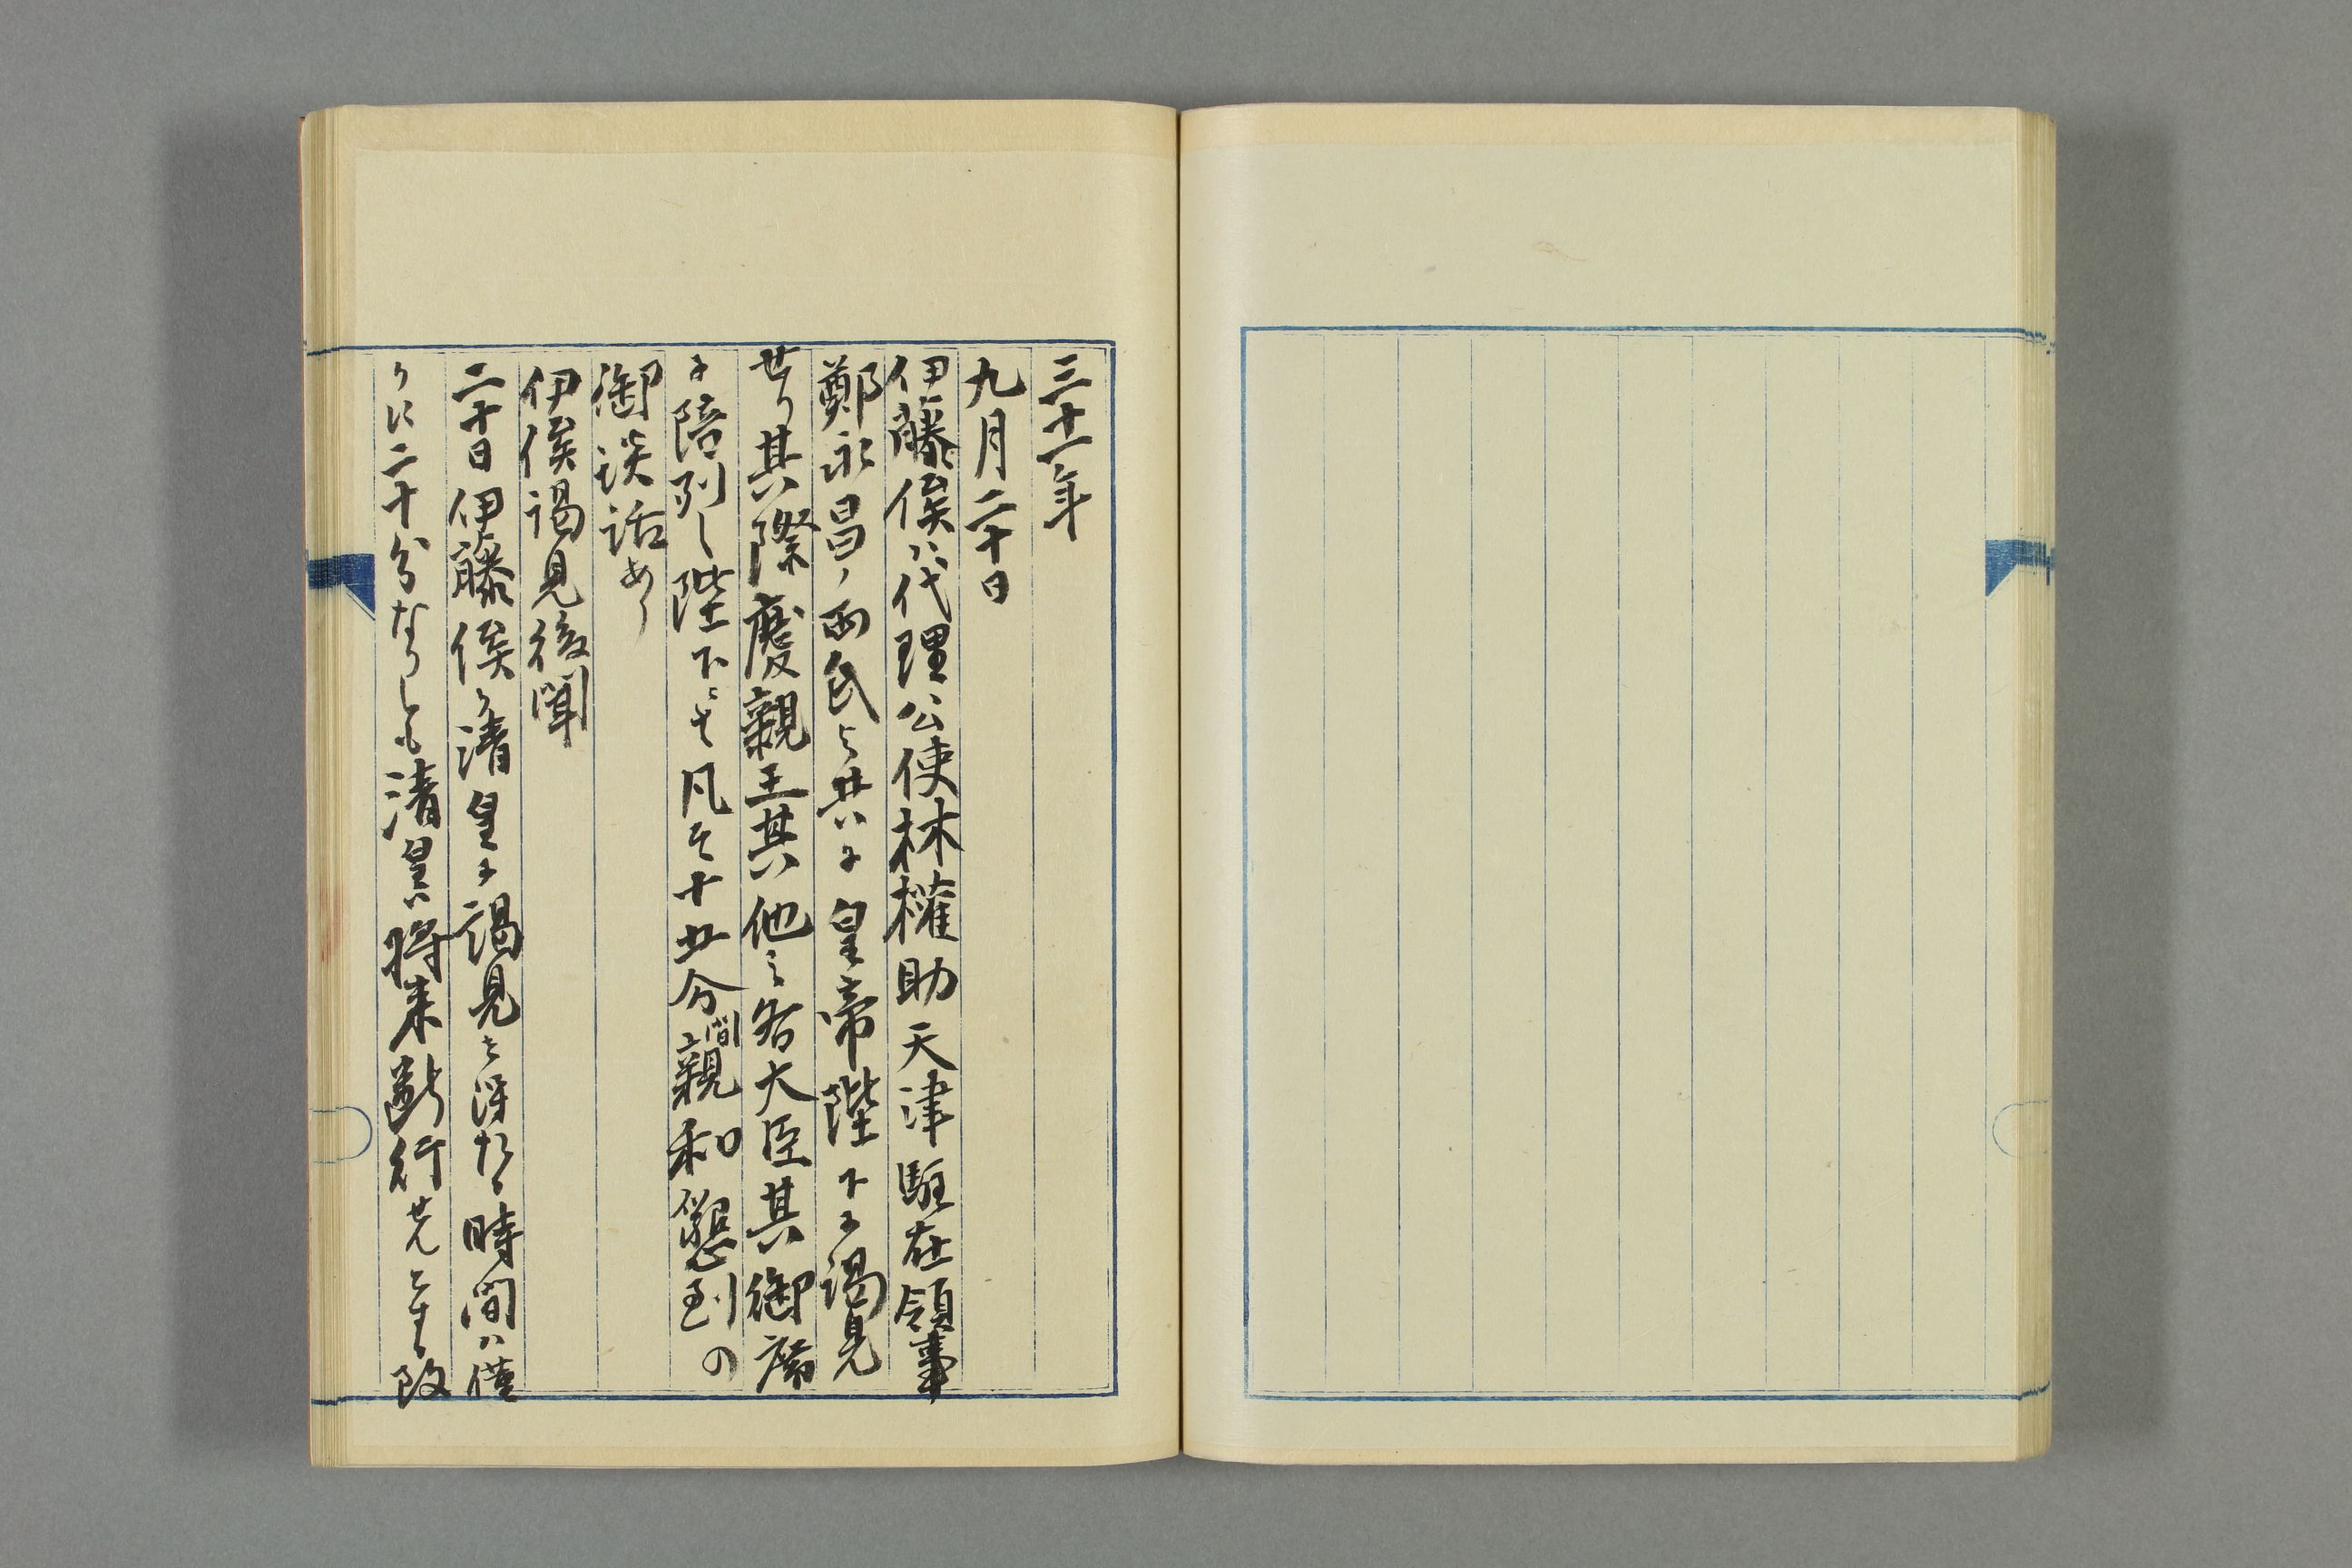 三十一年
九月二十日
伊藤侯ハ代理公使林権助天津駐在領事
鄭永昌ノ両氏と共に皇帝陛下に謁見
せり其際慶親王其他之各大臣其御席
に陪列し陛下にも凡そ十五分間親和懇到の
御談話あり
伊侯謁見後聞
二十日伊藤侯が清皇に謁見を得たる時間ハ僅
かに二十分なりしも清皇ハ将来断行せんとする改